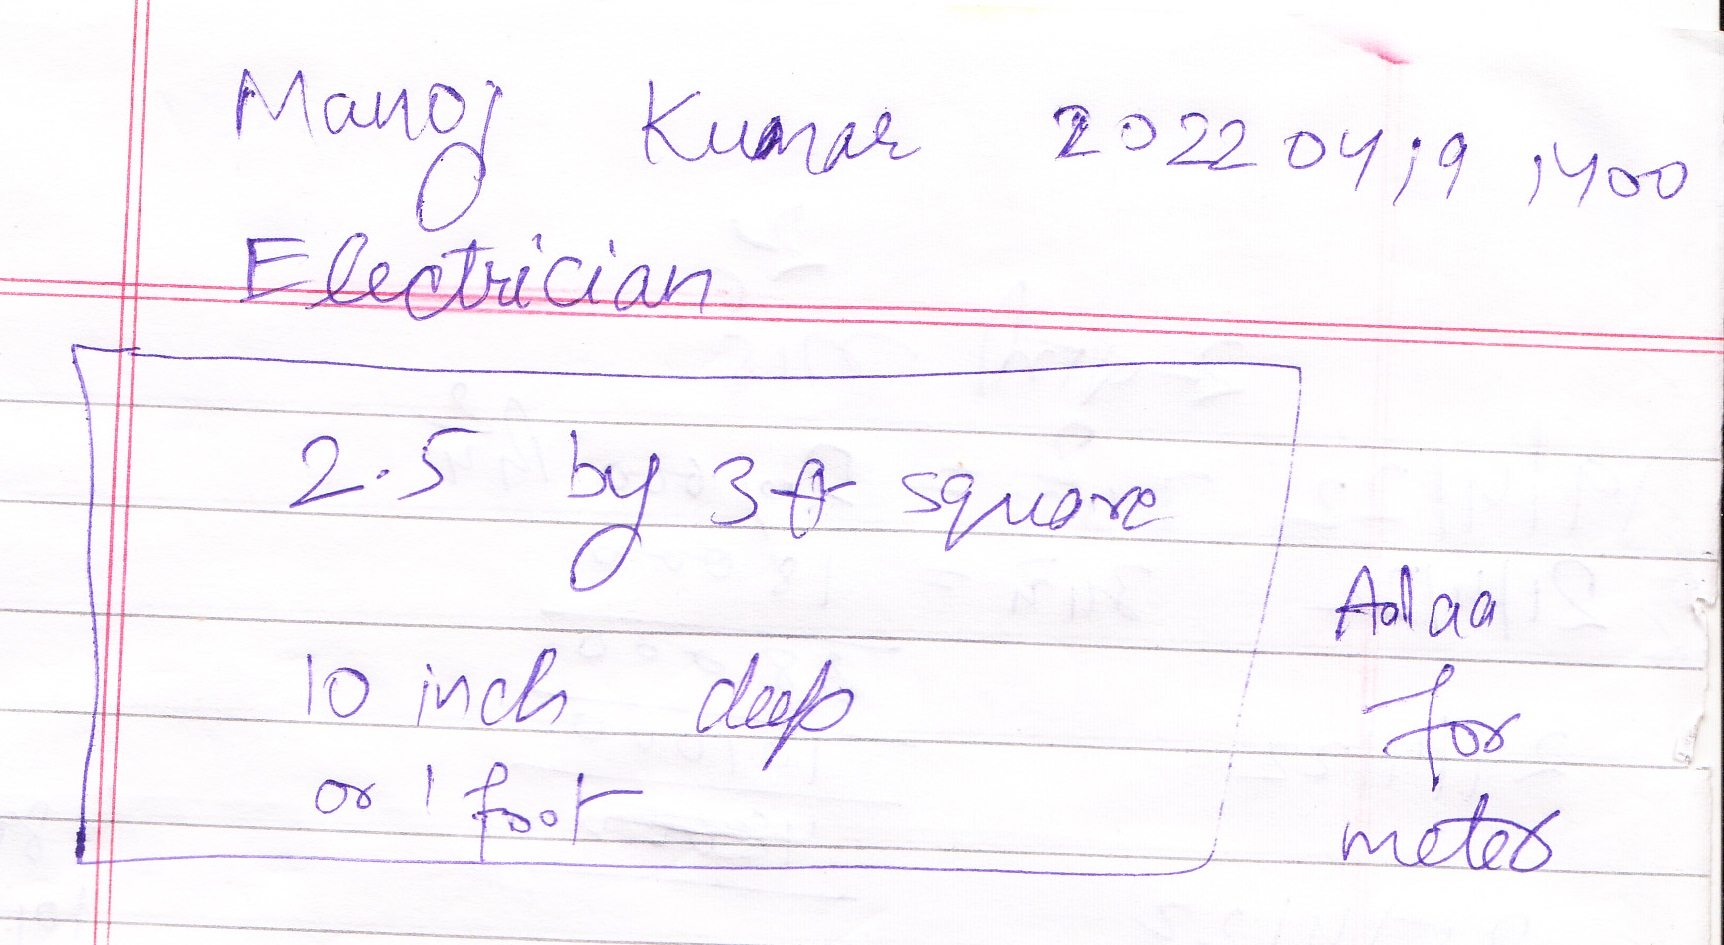 Manoj Kumar 2022 04 19 1400
Electrician
2.5 by 3 ft square
10 inch deep
or 1 foot
Aalaa
for
meter